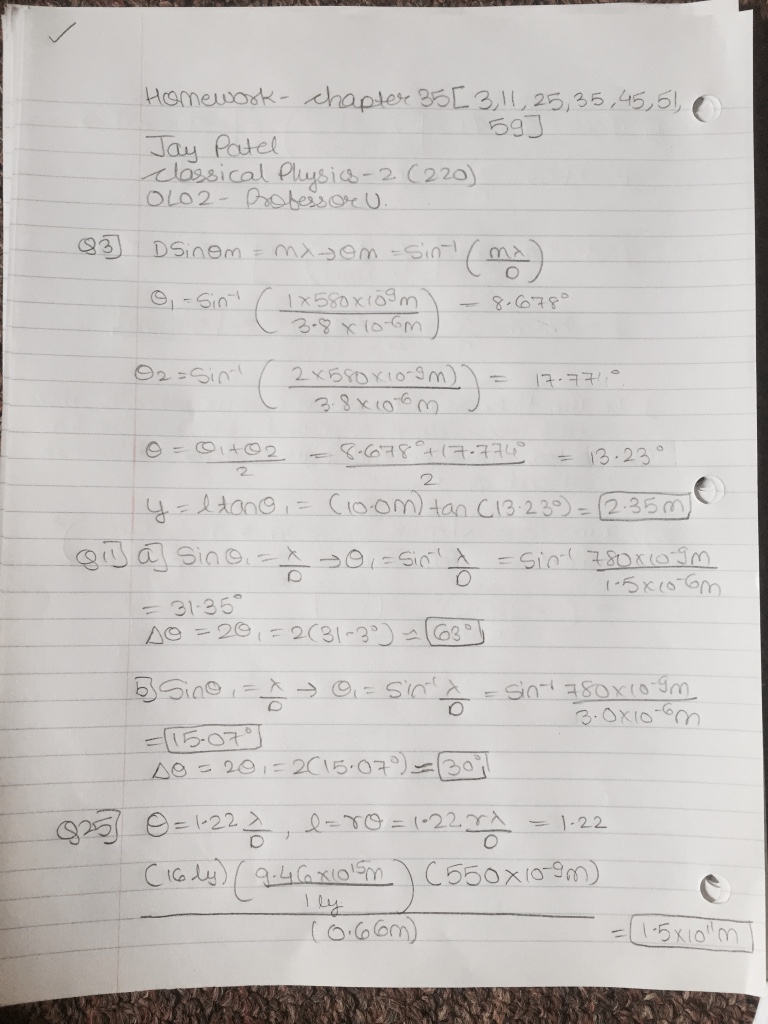 Homework - chapter 35 [ 3,11, 25, 35, 45, 51,
59]
Jay Patel
classical Physics - 2 (220)
OL02 - Professor U.
Q3] DSinθm = mλ → θm = Sin⁻¹ (mλ/D)
θ₁ = Sin⁻¹ (1×580×10⁻⁹m / 3.8×10⁻⁶m) = 8.678°
θ2 = Sin⁻¹ (2×580×10⁻⁹m) / 3.8×10⁻⁶m) = 17.774°
θ = θ₁+θ2 / 2 = 8.678°+17.774° / 2 = 13.23°
y = ltanθ₁ = (10.0m) tan (13.23°) = 2.35m
Q11] a] Sinθ₁ = λ/D → θ₁ = Sin⁻¹ λ/D = Sin⁻¹ 780×10⁻⁹m / 1.5×10⁻⁶m
= 31.35°
Δθ = 2θ₁ = 2(31-3°) = 63°
b] Sinθ₁ = λ/D → θ₁ = Sin⁻¹ λ/D = Sin⁻¹ 780×10⁻⁹m / 3.0×10⁻⁶m
= 15.07°
Δθ = 2θ₁ = 2(15.07°) = 30°
Q25] θ = 1.22 λ/D , l = rθ = 1.22 rλ/D = 1.22
(16 ly) (9.46×10¹⁵m / 1 ly) (550×10⁻⁹m)
(0.66m) = 1.5×10¹¹m